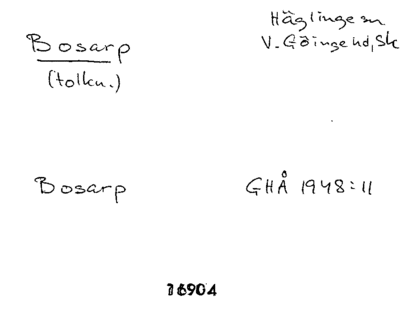 Bosarp
Häglinge sn
V. Göinge hd, Sk
(tolkn.)
Bosarp
GHÅ 1948:11
16904